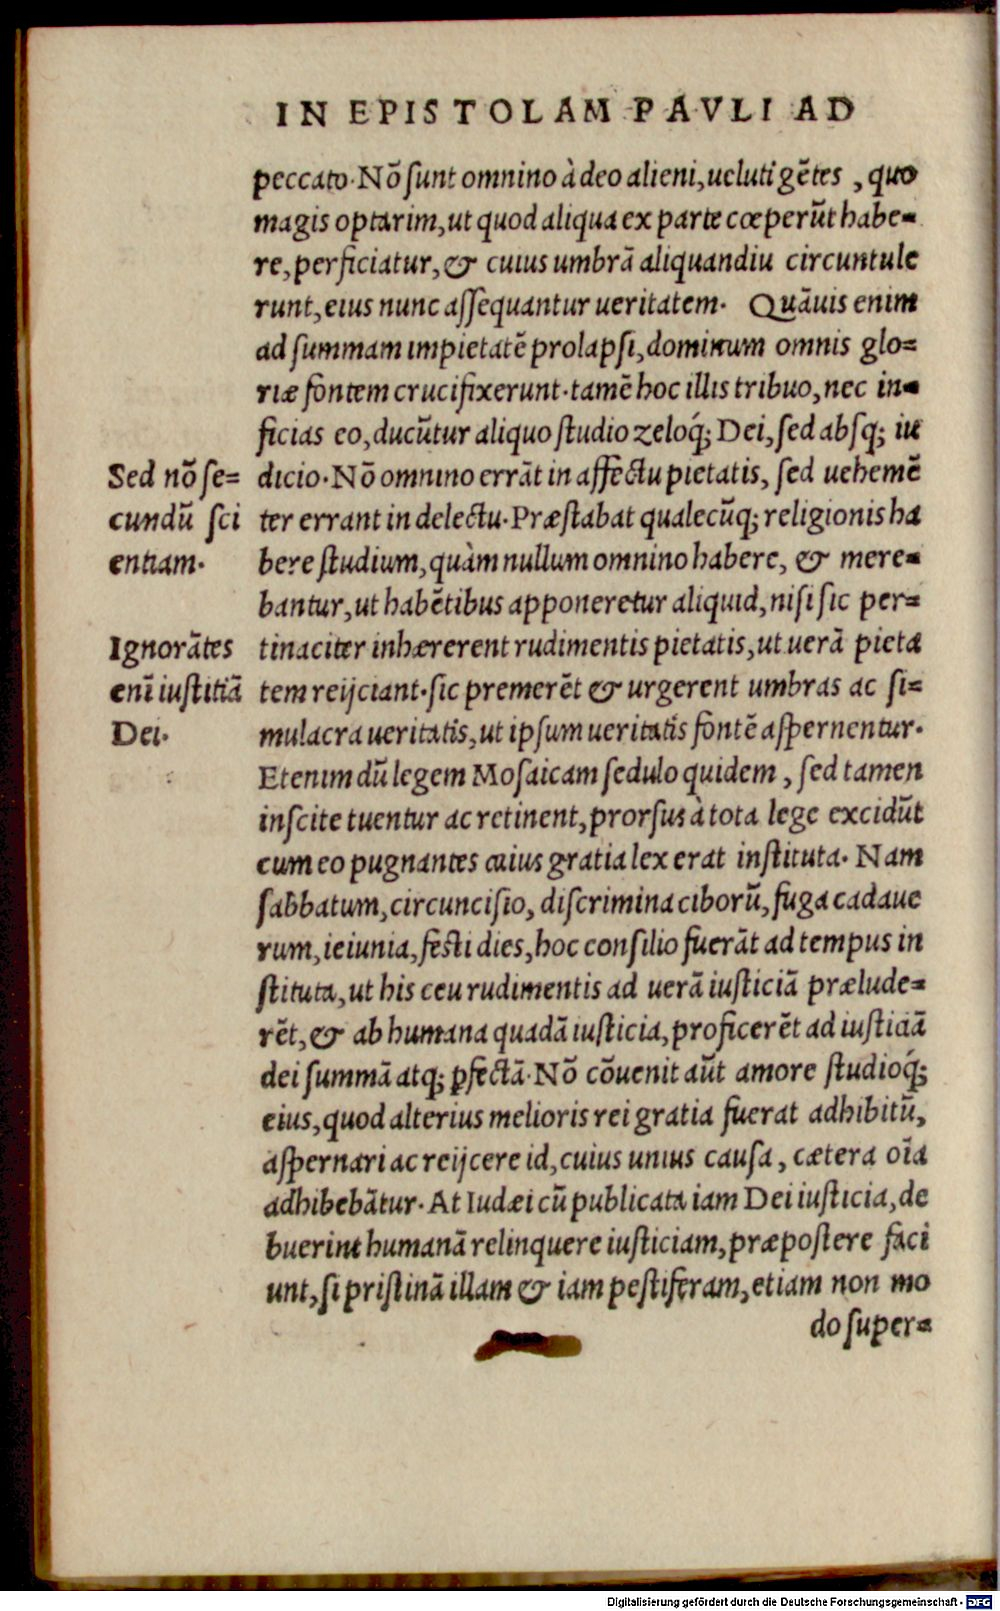 IN EPISTOLAM PAVLI AD
peccato. Nō sunt omnino à deo alieni, ueluti gētes, quo
magis optarim, ut quod aliqua ex parte cœperūt habe=
re, perficiatur, & cuius umbrā aliquandiu circuntule
runt, eius nunc assequantur ueritatem. Quāuis enim
ad summam impietatē prolapsi, dominum omnis glo=
riæ fontem crucifixerunt. tamē hoc illis tribuo, nec in=
ficias eo, ducūtur aliquo studio zeloq́; Dei, sed absq; iu
Sed nō se=
cundū sci
entiam.
dicio. Nō omnino errāt in affectu pietatis, sed uehemē
ter errant in delectu. Præstabat qualecūq; religionis ha
bere studium, quàm nullum omnino habere, & mere=
bantur, ut habētibus apponeretur aliquid, nisi sic per=
Ignorātes
enī iustitiā
Dei.
tinaciter inhærerent rudimentis pietatis, ut uerā pieta
tem reijciant. sic premerēt & urgerent umbras ac si=
mulacra ueritatis, ut ipsum ueritatis fontē aspernentur.
Etenim dū legem Mosaicam sedulo quidem, sed tamen
inscite tuentur ac retinent, prorsus à tota lege excidūt
cum eo pugnantes cuius gratia lex erat instituta. Nam
sabbatum, circuncisio, discrimina ciborū, fuga cadaue
rum, ieiunia, festi dies, hoc consilio fuerāt ad tempus in
stituta, ut his ceu rudimentis ad uerā iusticiā prælude=
rēt, & ab humana quadā iusticia, proficerēt ad iusticiā
dei summā atq; ꝑfectā. Nō cōuenit aūt amore studioq́;
eius, quod alterius melioris rei gratia fuerat adhibitū,
aspernari ac reijcere id, cuius unius causa, cætera oīa
adhibebātur. At Iudæi cū publicata iam Dei iusticia, de
buerint humanā relinquere iusticiam, præpostere faci
unt, si pristinā illam & iam pestiferam, etiam non mo
do super=
Digitalisierung gefördert durch die Deutsche Forschungsgemeinschaft - DFG